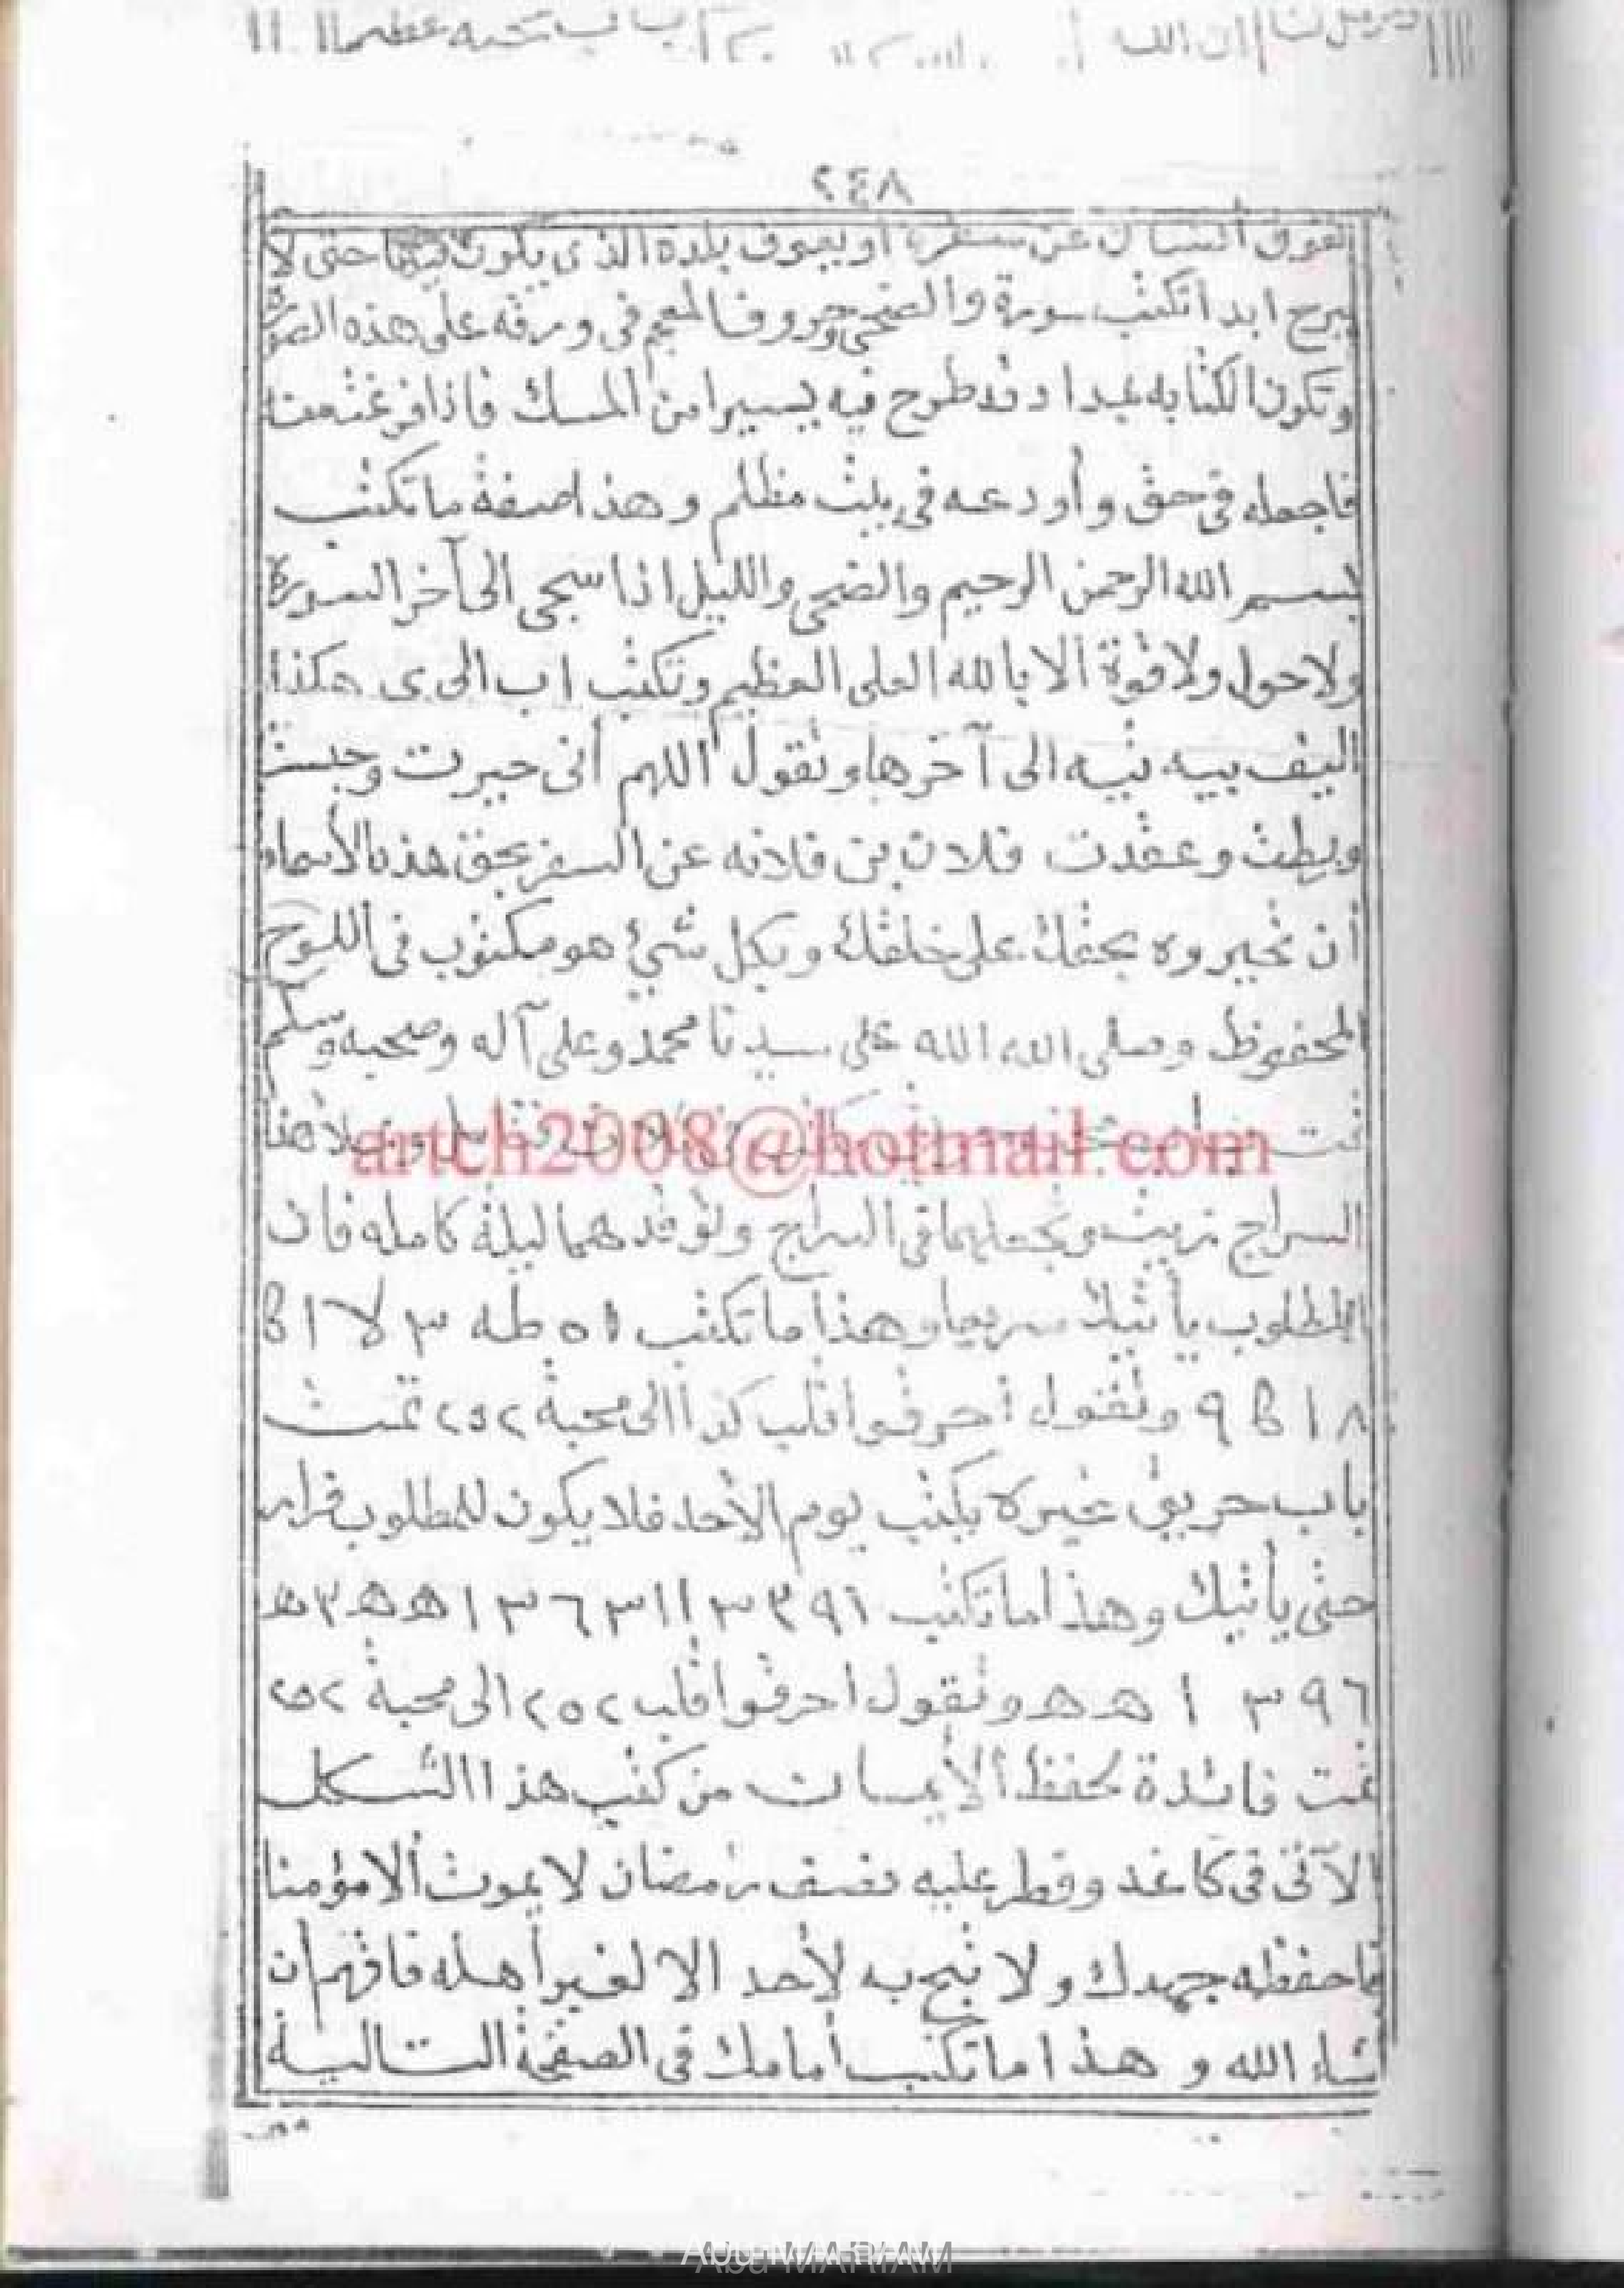 ٢٤٨
تعوق أنسان عن سفره أو يعوق بلده الذى يكون فيها حتى لا
يبرح ابدا تكتب سورة والضحى وحروف المعجم فى ورقه على هذه
وتكون الكتابه بمداد وقد طرح فيه يسيرا من المسك فاذا فرغت منه
فاجعله فى حق وأودعه فى بيت مظلم وهذا صفة ما تكتب
بسم الله الرحمن الرحيم والضحى والليل اذا سجى الى آخر السورة
ولا حول ولا قوة ألا بالله العلى العظيم وتكتب ا ب الى ى هكذا
اليف بيه تيه الى آخرها وتقول اللهم أنى حيرت وحبست
وربطت وعقدت فلان بن فلانه عن السفر بحق هذه الأسماء
أن تحيروه بحقك على خلقك وبكل شىء هو مكتوب فى اللوح
المحفوظ وصلى الله الله على سيدنا محمد وعلى آله وصحبه وسلم
تمت
artch2008@hotmail.com
السراج زيت وتجعلهما فى السراج وتوقدهما ليلة كامله فان
المطلوب يأتيك سريعا وهذا ما تكتب ١ ٥ ٥ طه ٣ لا ١
٨ ١ ٩ وتقول أحرقوا قلب كذا الى محبة ٢٥٢ تمت
باب حريق غيره يكتب يوم الأحد فلا يكون للمطلوب قرار
حتى يأتيك وهذا ما تكتب ٩٦ ٣ ٣ ١١ ٣ ٦ ٣ ١ هـ هـ ٣ هـ
٩٦ ٣ ١ هـ هـ وتقول احرقوا قلب ٢٥٢ الى محبة ٢٥٢
تمت فائدة لحفظ الأيمان من كتب هذا الشكل
الآتى فى كاغد وقطر عليه نصف رمضان لا يموت ألا مؤمنا
فاحفظه جهدك ولا تبح به لأحد الا لغير أهله فافهم أن
شاء الله وهذا ما تكتب أمامك فى الصفحة التالية
Abu MARIAM